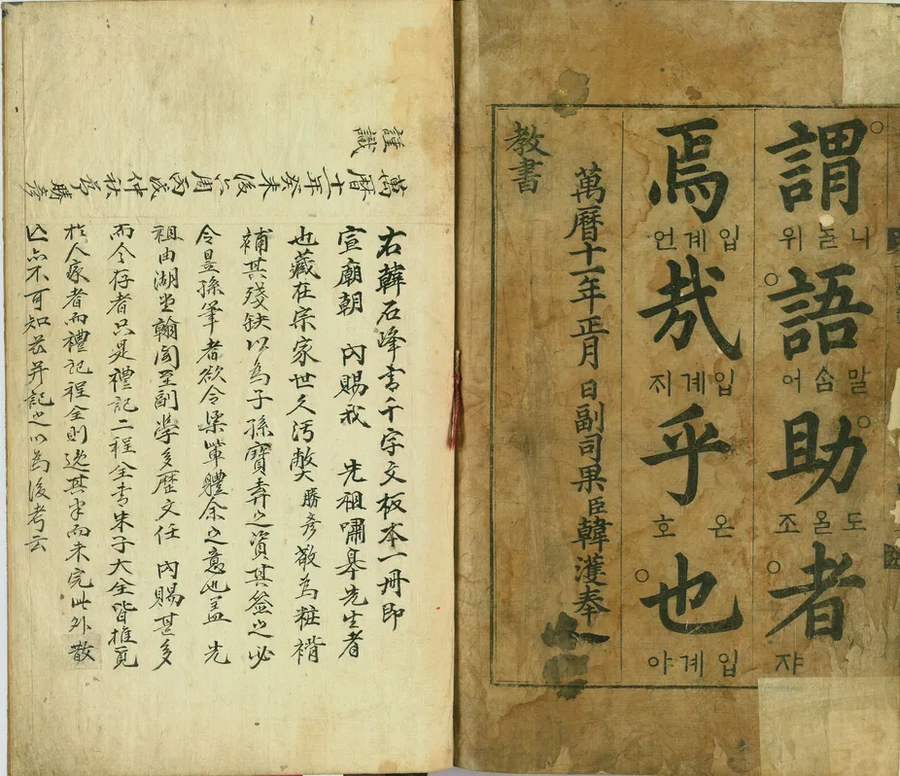 謂 니놀 위
語 말솜 어
助 도올 조
者 쟈
焉 입계 언
哉 입계 지
乎 온 호
也 입계 야
萬曆十一年正月 日副司果臣韓濩奉
教書
右韓石峰書千字文板本一冊即
宣廟朝 內賜我 先祖嘯皐先生者
也藏在宗家世久汚弊勝彥敬為粧褙
補其殘缺以為子孫寶弆之資其盆之必
令昰孫筆者欲令渠輩體余之意也盖 先
祖由湖堂翰閣至副學多歷文任 內賜甚多
而今存者只是禮記二程全書朱子大全皆推覓
於人家者而禮記程全則逸其半而未完此外散
亡亦不可知茲并記之以為後考云
萬曆十一年癸未後六周丙戌仲秋 勝彥
謹識